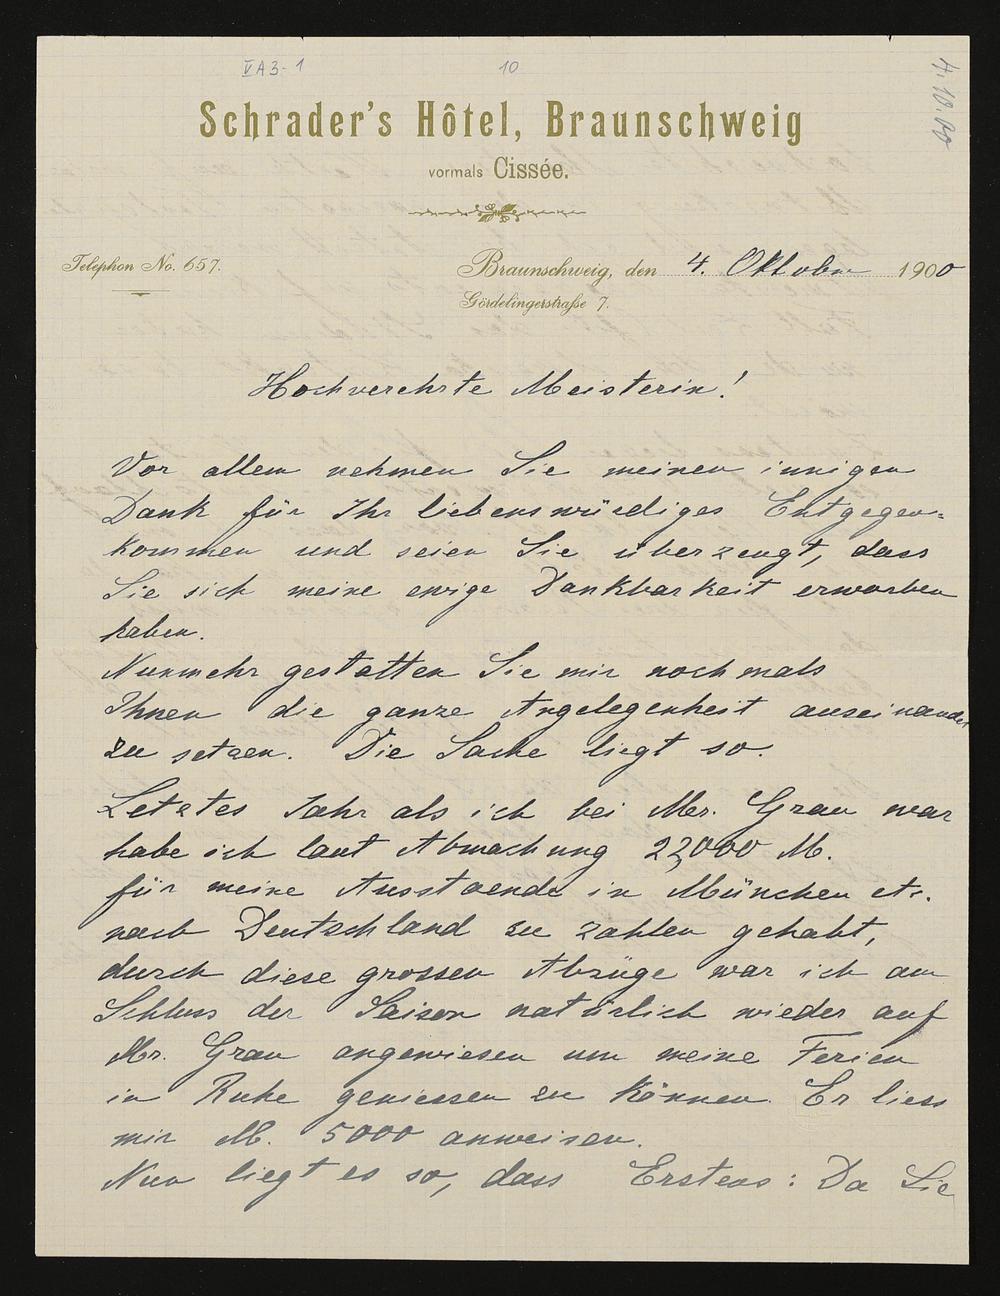 VA3-1 10
4.10.00
Schrader's Hôtel, Braunschweig
vormals Cissée.
Telephon No. 657.
Braunschweig, den 4. Oktober 1900
Gördelingerstraße 7.
Hochverehrte Meisterin!
Vor allem nehmen Sie meinen innigen
Dank für Ihr liebenswürdiges Entgegen-
kommen und seien Sie überzeugt, dass
Sie sich meine ewige Dankbarkeit erworben
haben.
Nunmehr gestatten Sie mir nochmals
Ihnen die ganze Angelegenheit auseinander
zu setzen. Die Sache liegt so.
Letztes Jahr als ich bei Mr. Grau war
habe ich laut Abmachung 22,000 M.
für meine Ausstaende in München etc.
nach Deutschland zu zahlen gehabt,
durch diese grossen Abzüge war ich am
Schluss der Saison natürlich wieder auf
Mr. Grau angewiesen um meine Ferien
in Ruhe geniessen zu können. Er liess
mir M. 5000 anweisen.
Nun liegt es so, dass Erstens: Da Sie